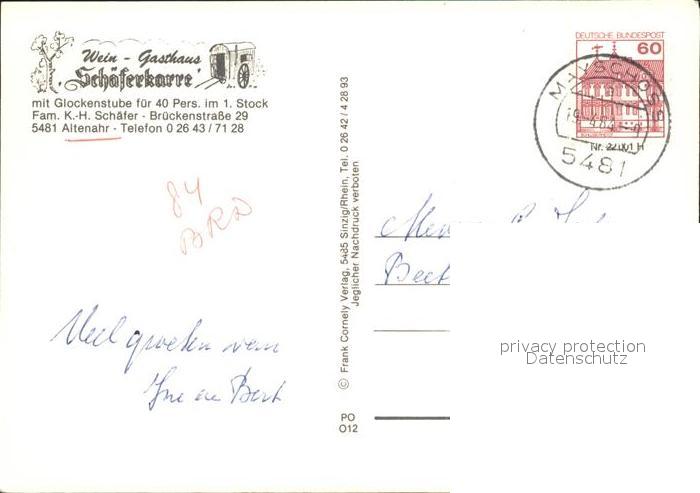 Wein - Gasthaus
"Schäferkarre"
mit Glockenstube für 40 Pers. im 1. Stock
Fam. K.-H. Schäfer - Brückenstraße 29
5481 Altenahr - Telefon 0 26 43 / 71 28
84
BRD
Veel groeten van
en Bert
© Frank Cornely Verlag, 5485 Sinzig/Rhein, Tel. 0 26 42 / 4 28 93
Jeglicher Nachdruck verboten
PO
O12
DEUTSCHE BUNDESPOST
60
MAYSCHOSS
5481
privacy protection
Datenschutz